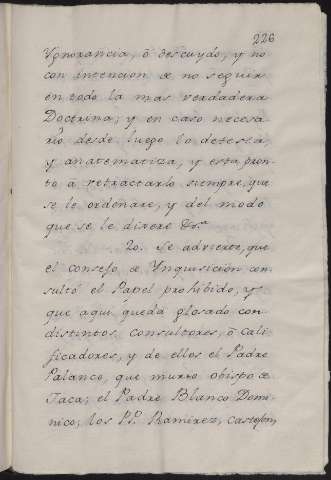 226
Ygnorancia, ô descuydo, y no
con intencion de no seguir
en todo la mas verdadera
Doctrina; y en caso necesa-
rio desde luego lo detesta,
y anatematiza, y esta pron-
to â retractarlo siempre, que
se le ordenare, y del modo
que se le dixere &c.a
20. Se advierte, que
el consejo de Ynquisicion con-
sultó el Papel prohibido, y
que aqui queda glosado con
distintos consultores, ô Cali-
ficadores, y de ellos el Padre
Palanco, que murio obispo de
Jaca; el Padre Blanco Domi-
nico; los P.P. Ramirez, Castejon,